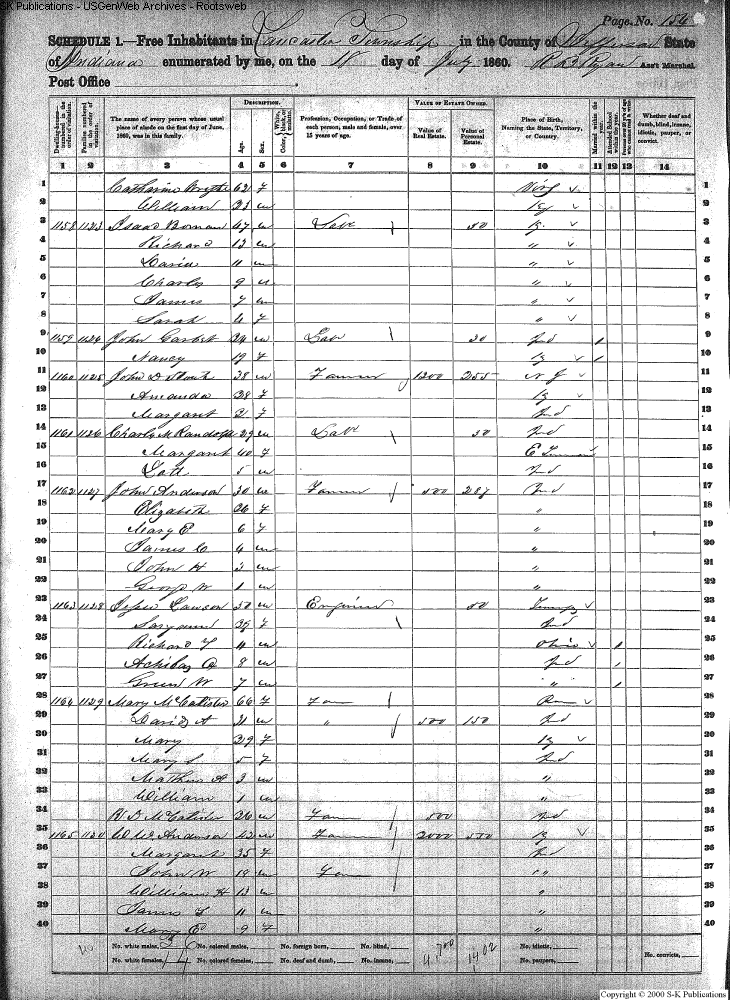 S-K Publications - USGenWeb Archives - Rootsweb
Page No. 156
SCHEDULE 1.—Free Inhabitants in Lancaster Township in the County of Jefferson State
of Indiana enumerated by me, on the 11 day of July 1860. R D Ryan Ass't Marshal.
Post Office
Dwelling-houses numbered in the order of visitation.
Families numbered in the order of visitation.
The name of every person whose usual place of abode on the first day of June, 1860, was in this family.
DESCRIPTION.
Age.
Sex.
Color, White, black, or mulatto.
Profession, Occupation, or Trade, of each person, male and female, over 15 years of age.
VALUE OF ESTATE OWNED.
Value of Real Estate.
Value of Personal Estate.
Place of Birth, Naming the State, Territory, or Country.
Married within the year.
Attended School within the year.
Whether deaf and dumb, blind, insane, idiotic, pauper, or convict.
1 2 3 4 5 6 7 8 9 10 11 12 13 14
1 Catharine 62 f 1
2 William 23 m Ky 2
3 1158 1123 Isaac Boman 47 m Labr 50 Ky 3
4 Richard 13 m " 4
5 11 m " 5
6 Charles 9 m " 6
7 James 7 m " 7
8 Sarah 4 f " 8
9 1159 1124 John 24 m Labr 30 Ind / 9
10 Nancy 19 f Ky / 10
11 1160 1125 John D Stout 38 m Farmer 1200 255 N J 11
12 Amanda 28 f Ky 12
13 Margaret 2 f Ind 13
14 1161 1126 Charly M Randolph 29 m Labr 50 Ind 14
15 Margaret 40 f E 15
16 Lott 5 m Ind 16
17 1162 1127 John Anderson 30 m Farmer 500 287 Ind 17
18 Elizabeth 26 f " 18
19 Mary E 6 f " 19
20 James C 4 m " 20
21 John H 3 m " 21
22 George W 1 m " 22
23 1163 1128 Lawson 50 m Engineer 50 23
24 f Ind 24
25 Richard T 11 m Ohio / 25
26 8 m Ind / 26
27 Green W 7 m " / 27
28 1164 1129 Mary McCalister 66 f 28
29 David A 31 m " 500 150 Ind 29
30 Mary 29 f Ky 30
31 Mary S 5 f Ind 31
32 A 3 m " 32
33 William 1 m " 33
34 McCalister 26 m 500 Ind 34
35 1165 1130 W W Anderson 42 m Farmer 2000 550 Ky 35
36 Margaret 35 f Ind 36
37 John W 18 m " 37
38 William H 13 m " 38
39 James T 11 m " 39
40 Mary E 9 f " 40
No. white males, No. colored males, No. foreign born, No. blind, No. idiotic,
No. white females, 14 No. colored females, No. deaf and dumb, No. insane, No. paupers, No. convicts,
4,700 1402
Copyright © 2000 S-K Publications